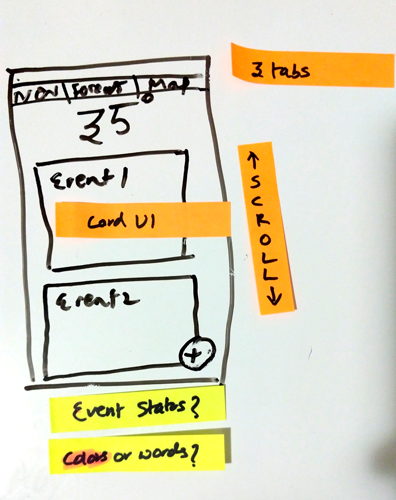 3 tabs
Now | Forecast | Map
35°
Event 1
Card UI
↑ SCROLL ↓
Event 2
+
Event Status?
Colors or words?